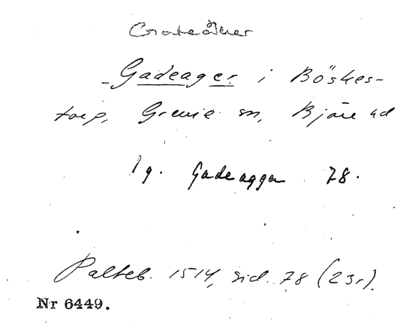 Gateåker
Gadeager i Böskes-
torp, Grevie sn, Bjäre hd
1 g. Gadeagger 78.
Palteb. 1514, sid. 78 (23r).
Nr 6449.